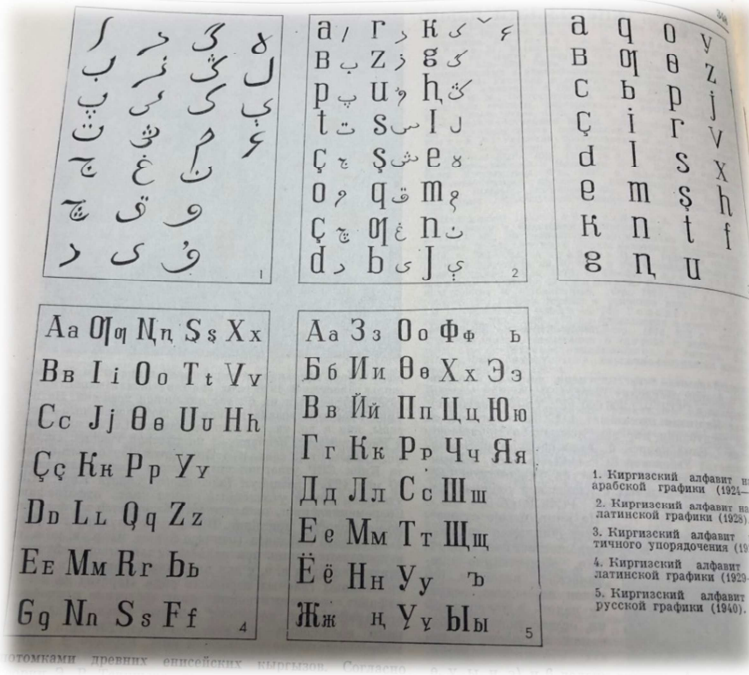 ا ر گ ە
ب ز ڭ ل
پ س ک ي
ت ش م ء
ج غ ن
چ ق و
د ى ۇ
1
a ا r ر к ک ˇ ء
в ب z ز g گ
p پ u ۇ ң ڭ
t ت s س l ل
ç ج ş ش e ە
o و q ق m م
ç چ ƣ غ n ن
d د ь ى j ي
2
a q o y
в ƣ ɵ z
c ь p j
ç i r v
d l s x
e m ş h
к n t f
g ꞑ u
Aa Ƣƣ Ꞑꞑ Şş Xx
Bв Ii Oo Tt Vv
Cc Jj Ɵɵ Uu Hh
Çç Кк Pp Yy
Dᴅ Lʟ Qq Zz
Eᴇ Mм Rr Ьь
Gg Nn Ss Ff
4
Аа Зз Оо Фф ь
Бб Ии Өө Хх Ээ
Вв Йй Пп Цц Юю
Гг Кк Рр Чч Яя
Дд Лл Сс Шш
Ее Мм Тт Щщ
Ёё Нн Уу ъ
Жж ң Үү Ыы
5
1. Киргизский алфавит
арабской графики (1924—
2. Киргизский алфавит
латинской графики (1928)
3. Киргизский алфавит
тичного упорядочения
4. Киргизский алфавит
латинской графики (1929—
5. Киргизский алфавит
русской графики (1940).
потомками древних енисейских кыргызов. Согласно